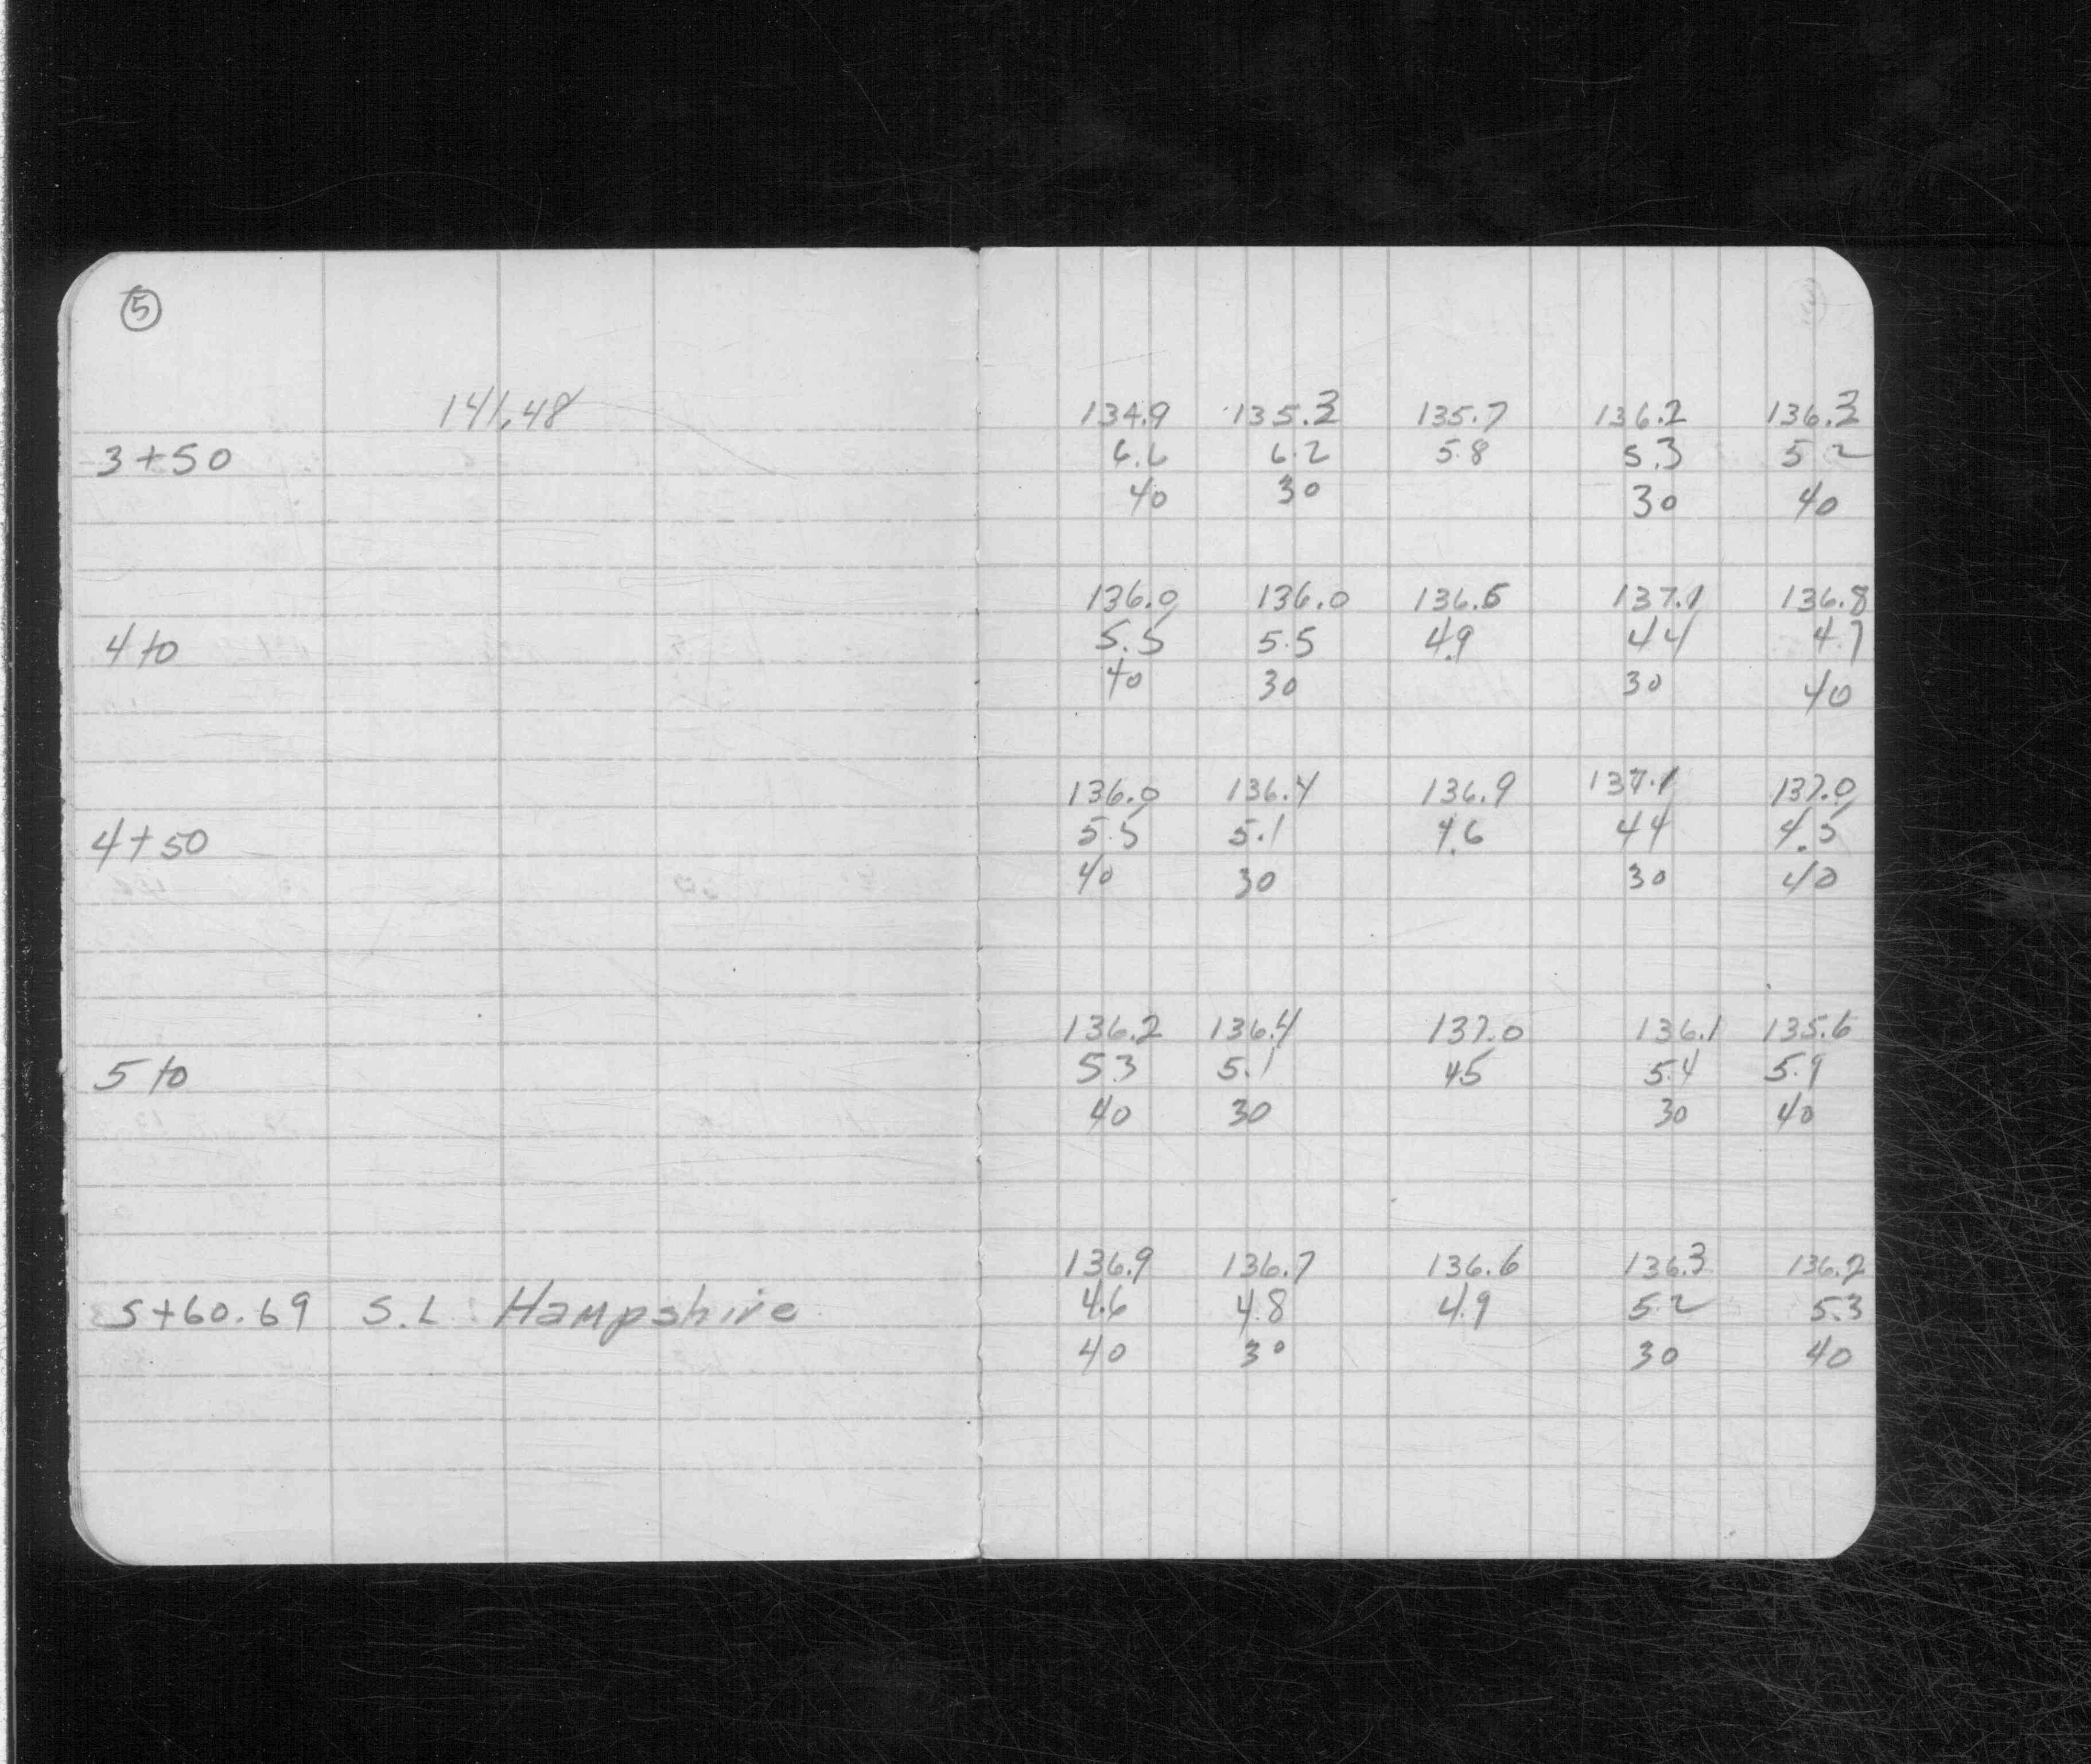 5
141.48
134.9 135.3 135.7 136.2 136.3
3+50 6.6 6.2 5.8 5.3 5.2
40 30 30 40
136.0 136.0 136.6 137.1 136.8
4+0 5.5 5.5 4.9 4.4 4.7
40 30 30 40
136.0 136.4 136.9 137.1 137.0
4+50 5.5 5.1 4.6 4.4 4.5
40 30 30 40
136.2 136.4 137.0 136.1 135.6
5+0 5.3 5.1 4.5 5.4 5.9
40 30 30 40
136.9 136.7 136.6 136.3 136.2
5+60.69 S.L. Hampshire 4.6 4.8 4.9 5.2 5.3
40 30 30 40